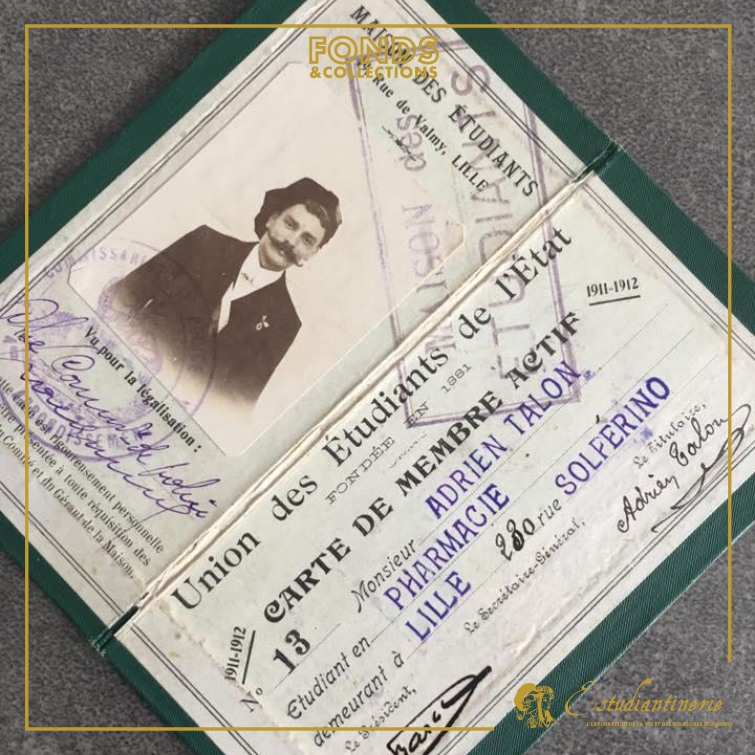 FONDS
& COLLECTIONS
MAISON DES ÉTUDIANTS
Rue de Valmy, LILLE
MAISON des
ÉTUDIANTS
Vu pour la légalisation :
est rigoureusement personnelle
être présentée à toute réquisition des
du Comité et du Gérant de la Maison.
Union des Étudiants de l'État
FONDÉE EN 1881
1911-1912
CARTE DE MEMBRE ACTIF
1911-1912
N° 13 Monsieur ADRIEN TALON
Etudiant en PHARMACIE
demeurant à LILLE 230 rue SOLFERINO
Le Président,
Le Secrétaire-Général,
Le Titulaire,
Adrien Talon
Estudiantinerie
L'EXPLORATION DE LA VIE ET DES FOLKLORES ÉTUDIANTS